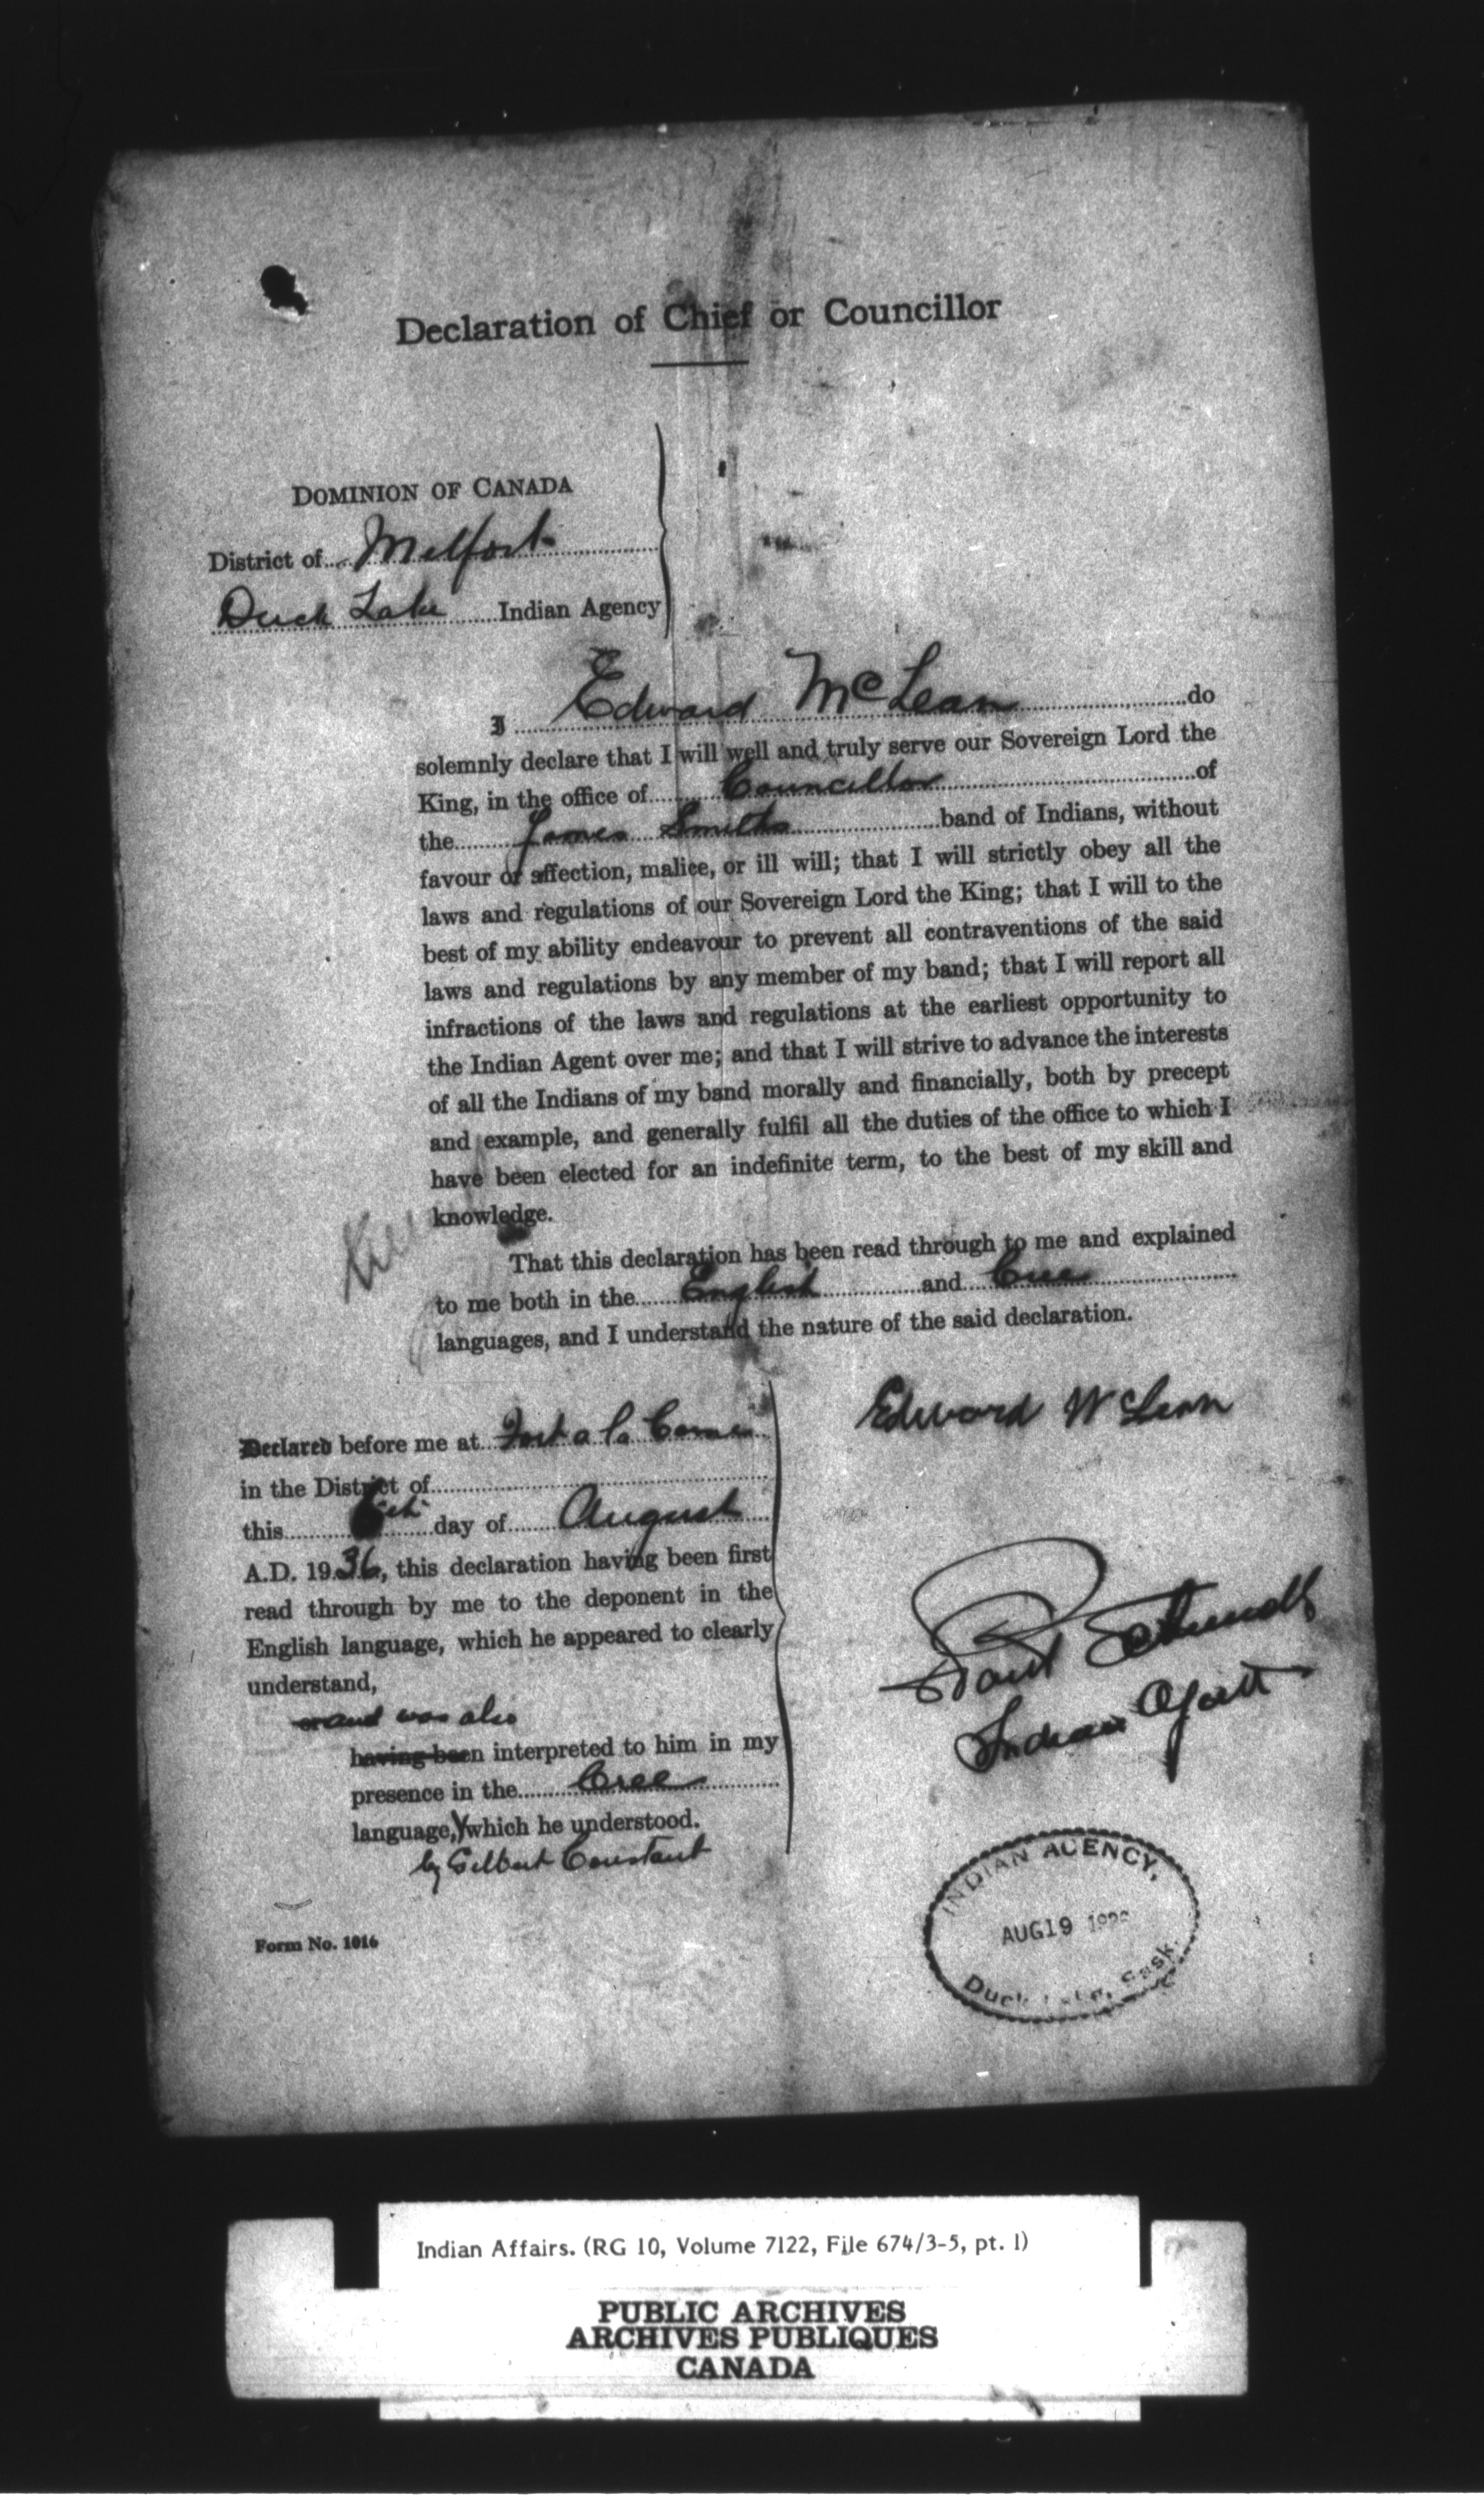 Declaration of Chief or Councillor
DOMINION OF CANADA
District of Melfort
Duck Lake Indian Agency
I Edward McLean do
solemnly declare that I will well and truly serve our Sovereign Lord the
King, in the office of Councillor of
the James Smiths band of Indians, without
favour or affection, malice, or ill will; that I will strictly obey all the
laws and regulations of our Sovereign Lord the King; that I will to the
best of my ability endeavour to prevent all contraventions of the said
laws and regulations by any member of my band; that I will report all
infractions of the laws and regulations at the earliest opportunity to
the Indian Agent over me; and that I will strive to advance the interests
of all the Indians of my band morally and financially, both by precept
and example, and generally fulfil all the duties of the office to which I
have been elected for an indefinite term, to the best of my skill and
knowledge.
That this declaration has been read through to me and explained
to me both in the English and Cree
languages, and I understand the nature of the said declaration.
Edward McLean
Declared before me at Fort a la Corne
in the District of
this 6th day of August
A.D. 1936, this declaration having been first
read through by me to the deponent in the
English language, which he appeared to clearly
understand,
or and was also
having been interpreted to him in my
presence in the Cree
language, which he understood.
by Gilbert Constant
Indian Agent
INDIAN AGENCY,
AUG 19
Duck Lake, Sask.
Form No. 1016
Indian Affairs. (RG 10, Volume 7122, File 674/3-5, pt. 1)
PUBLIC ARCHIVES
ARCHIVES PUBLIQUES
CANADA